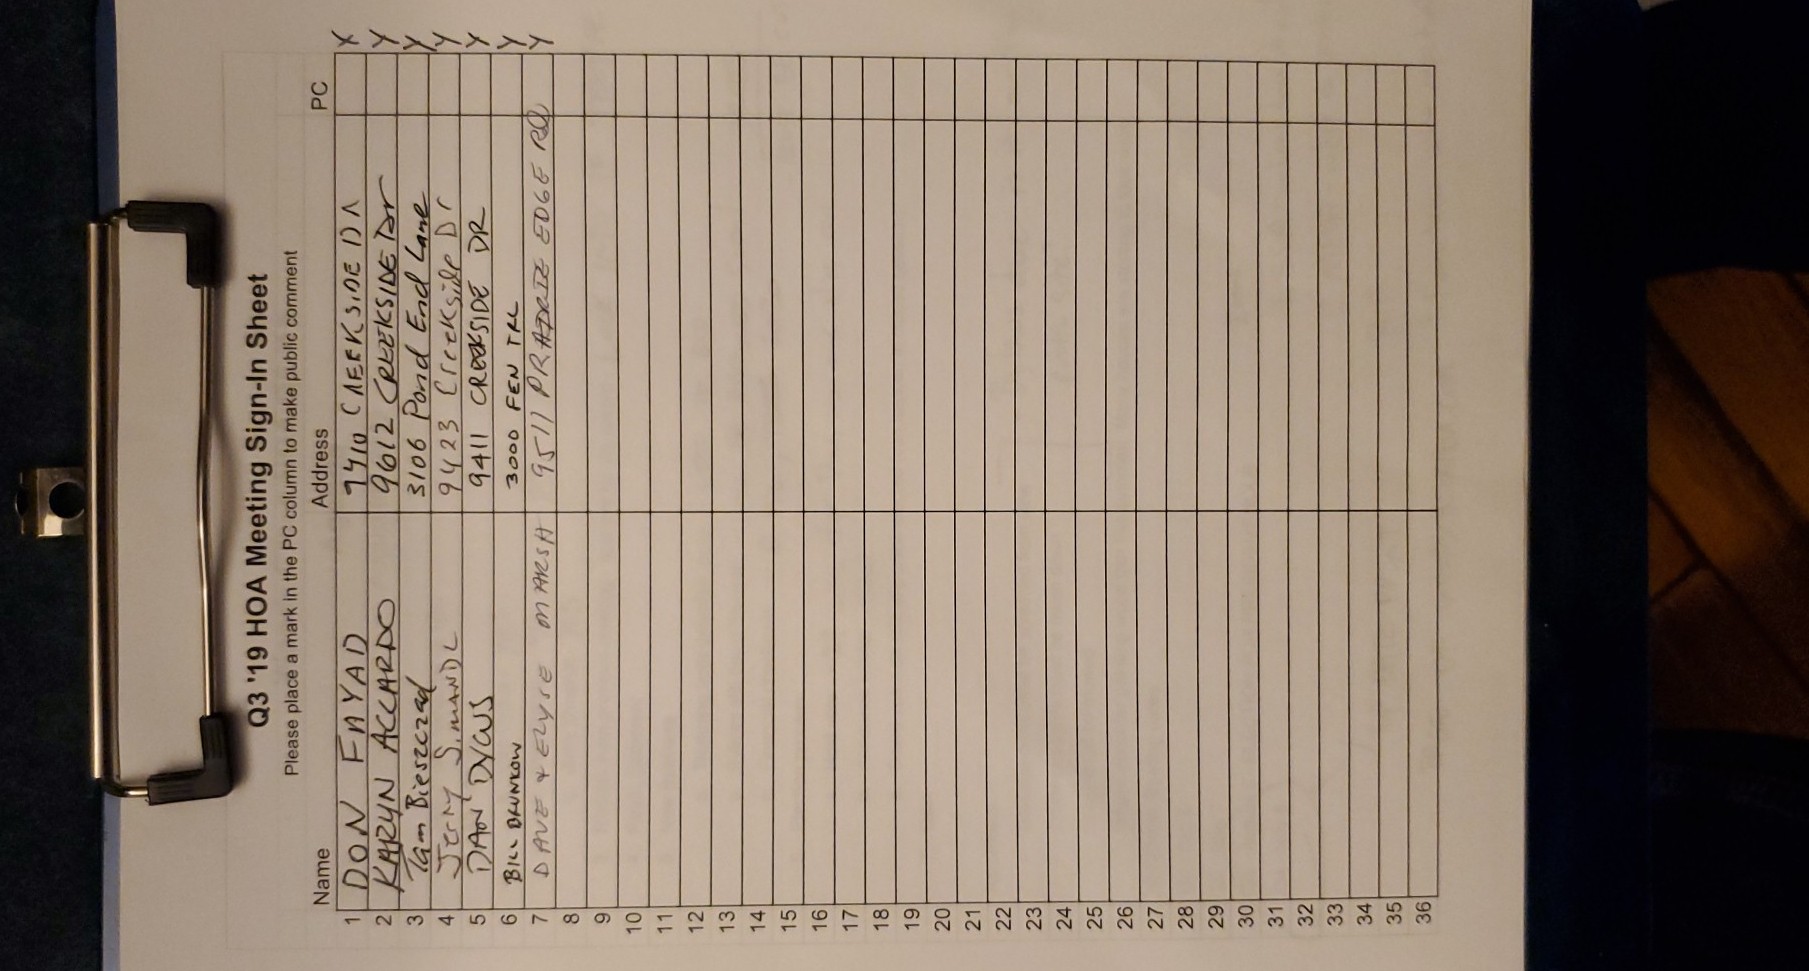 Q3 '19 HOA Meeting Sign-In Sheet
Please place a mark in the PC column to make public comment
Name Address PC
1 DON FAYAD 9410 CREEKSIDE DR X
2 KARYN ACCARDO 9612 CREEKSIDE Dr X
3 Tam Bieszczad 3106 Pond End Lane X
4 Jerry SimANDL 9423 Creekside Dr X
5 DAN DYCUS 9411 CREEKSIDE DR X
6 BILL BRUNKOW 3000 FEN TRL X
7 DAVE + ELYSE MARSH 9511 PRAIRIE EDGE RD X
8
9
10
11
12
13
14
15
16
17
18
19
20
21
22
23
24
25
26
27
28
29
30
31
32
33
34
35
36